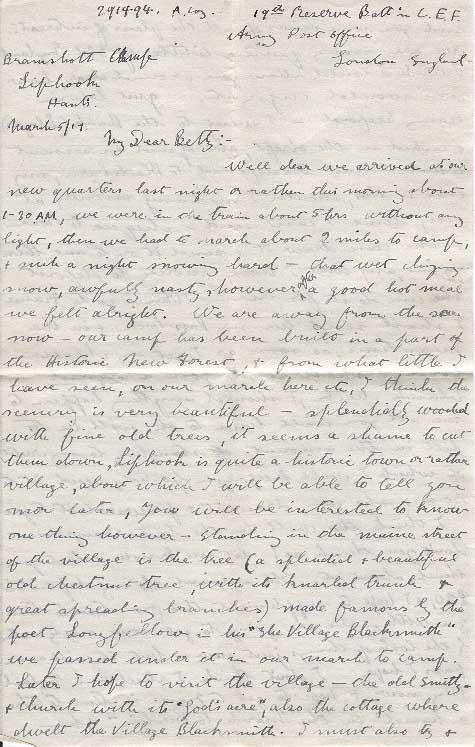 2914-94. A. Coy. 19th Reserve Batt'n C.E.F.
Army Post Office
London England
Bramshott Camp
Liphook
Hants.
March 5/17
My Dear Betty:-
Well dear we arrived at our
new quarters last night or rather this morning about
1-30 AM, we were in the train about 5 hrs without any
light, then we had to march about 2 miles to camp,
& such a night snowing hard - that wet clinging
snow, awfully nasty, however after a good hot meal
we felt alright. We are away from the sea
now - our camp has been built in a part of
the Historic New Forest, & from what little I
have seen, on our march here etc, I think the
scenery is very beautiful - splendidly wooded
with fine old trees, it seems a shame to cut
them down, Liphook is quite a historic town or rather
village, about which I will be able to tell you
mor later, You will be interested to know
one thing however - Standing in the maine street
of the village is the tree (a splendid & beautiful
old chestnut tree, with its knarled trunk &
great spreading branches) made famous by the
poet Longfellow in his "The Village Blacksmith"
we passed under it in our march to camp.
Later I hope to visit the village - the old smithy
& church with its "God's acre", also the cottage where
dwelt the Village Blacksmith. I must also try &